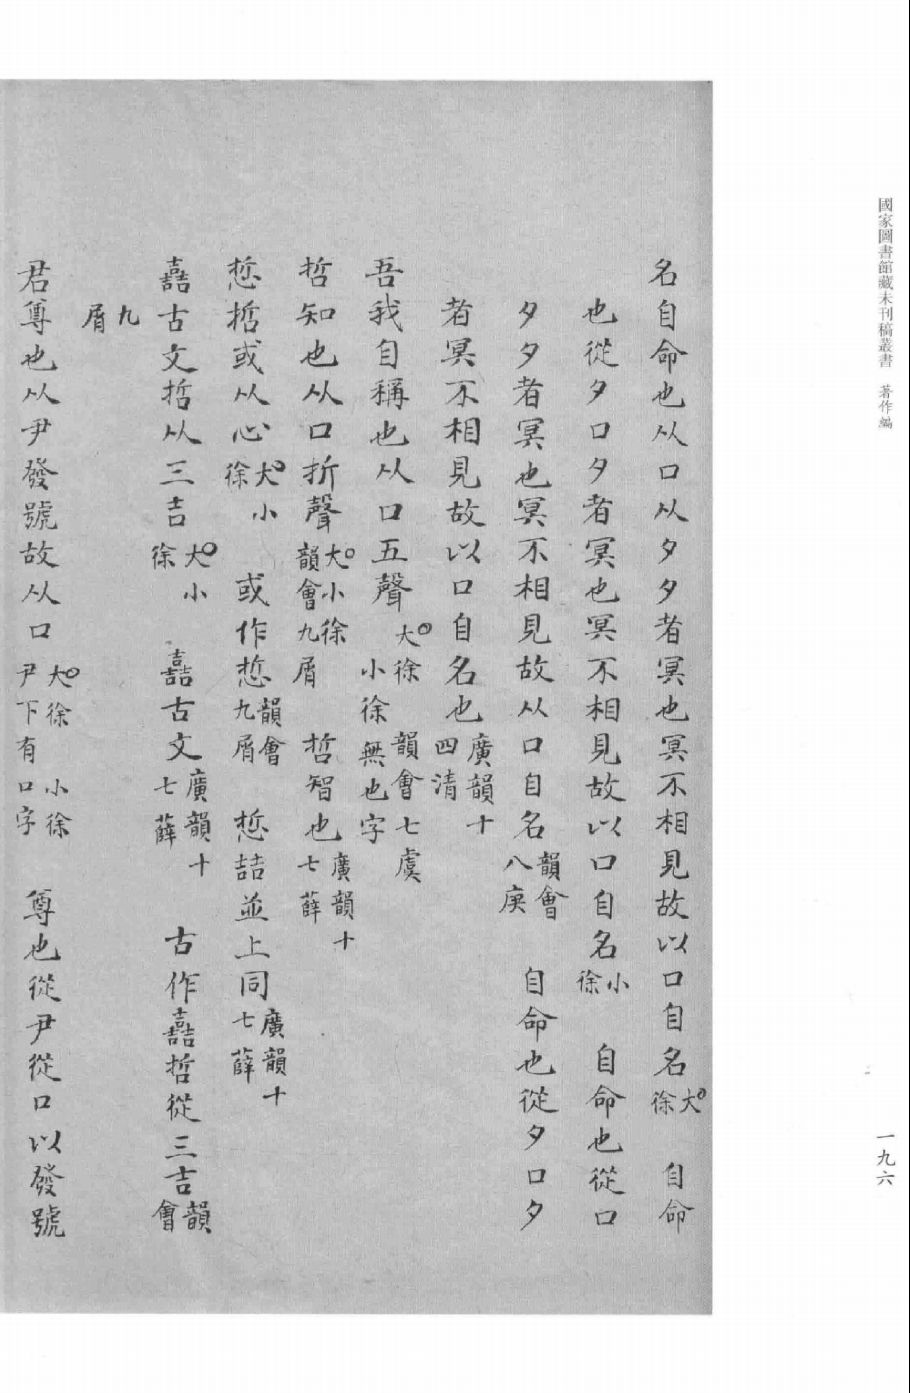 國家圖書館藏未刊稿叢書　著作編
一九六
名自命也从口从夕夕者冥也冥不相見故以口自名大徐　自命
也從夕口夕者冥也冥不相見故以口自名小徐　自命也從口
夕夕者冥也冥不相見故从口自名韻會八庚　自命也從夕口夕
者冥不相見故以口自名也廣韻十四清
吾我自稱也从口五聲大徐　韻會七虞小徐無也字
哲知也从口折聲大小徐韻會九屑　哲智也廣韻十七薛
悊哲或从心大小徐　或作悊韻會九屑　悊喆並上同廣韻十七薛
嚞古文哲从三吉大小徐　嚞古文廣韻十七薛　古作嚞哲從三吉韻會
九屑
君尊也从尹發號故从口大徐　小徐尹下有口字　尊也從尹從口以發號